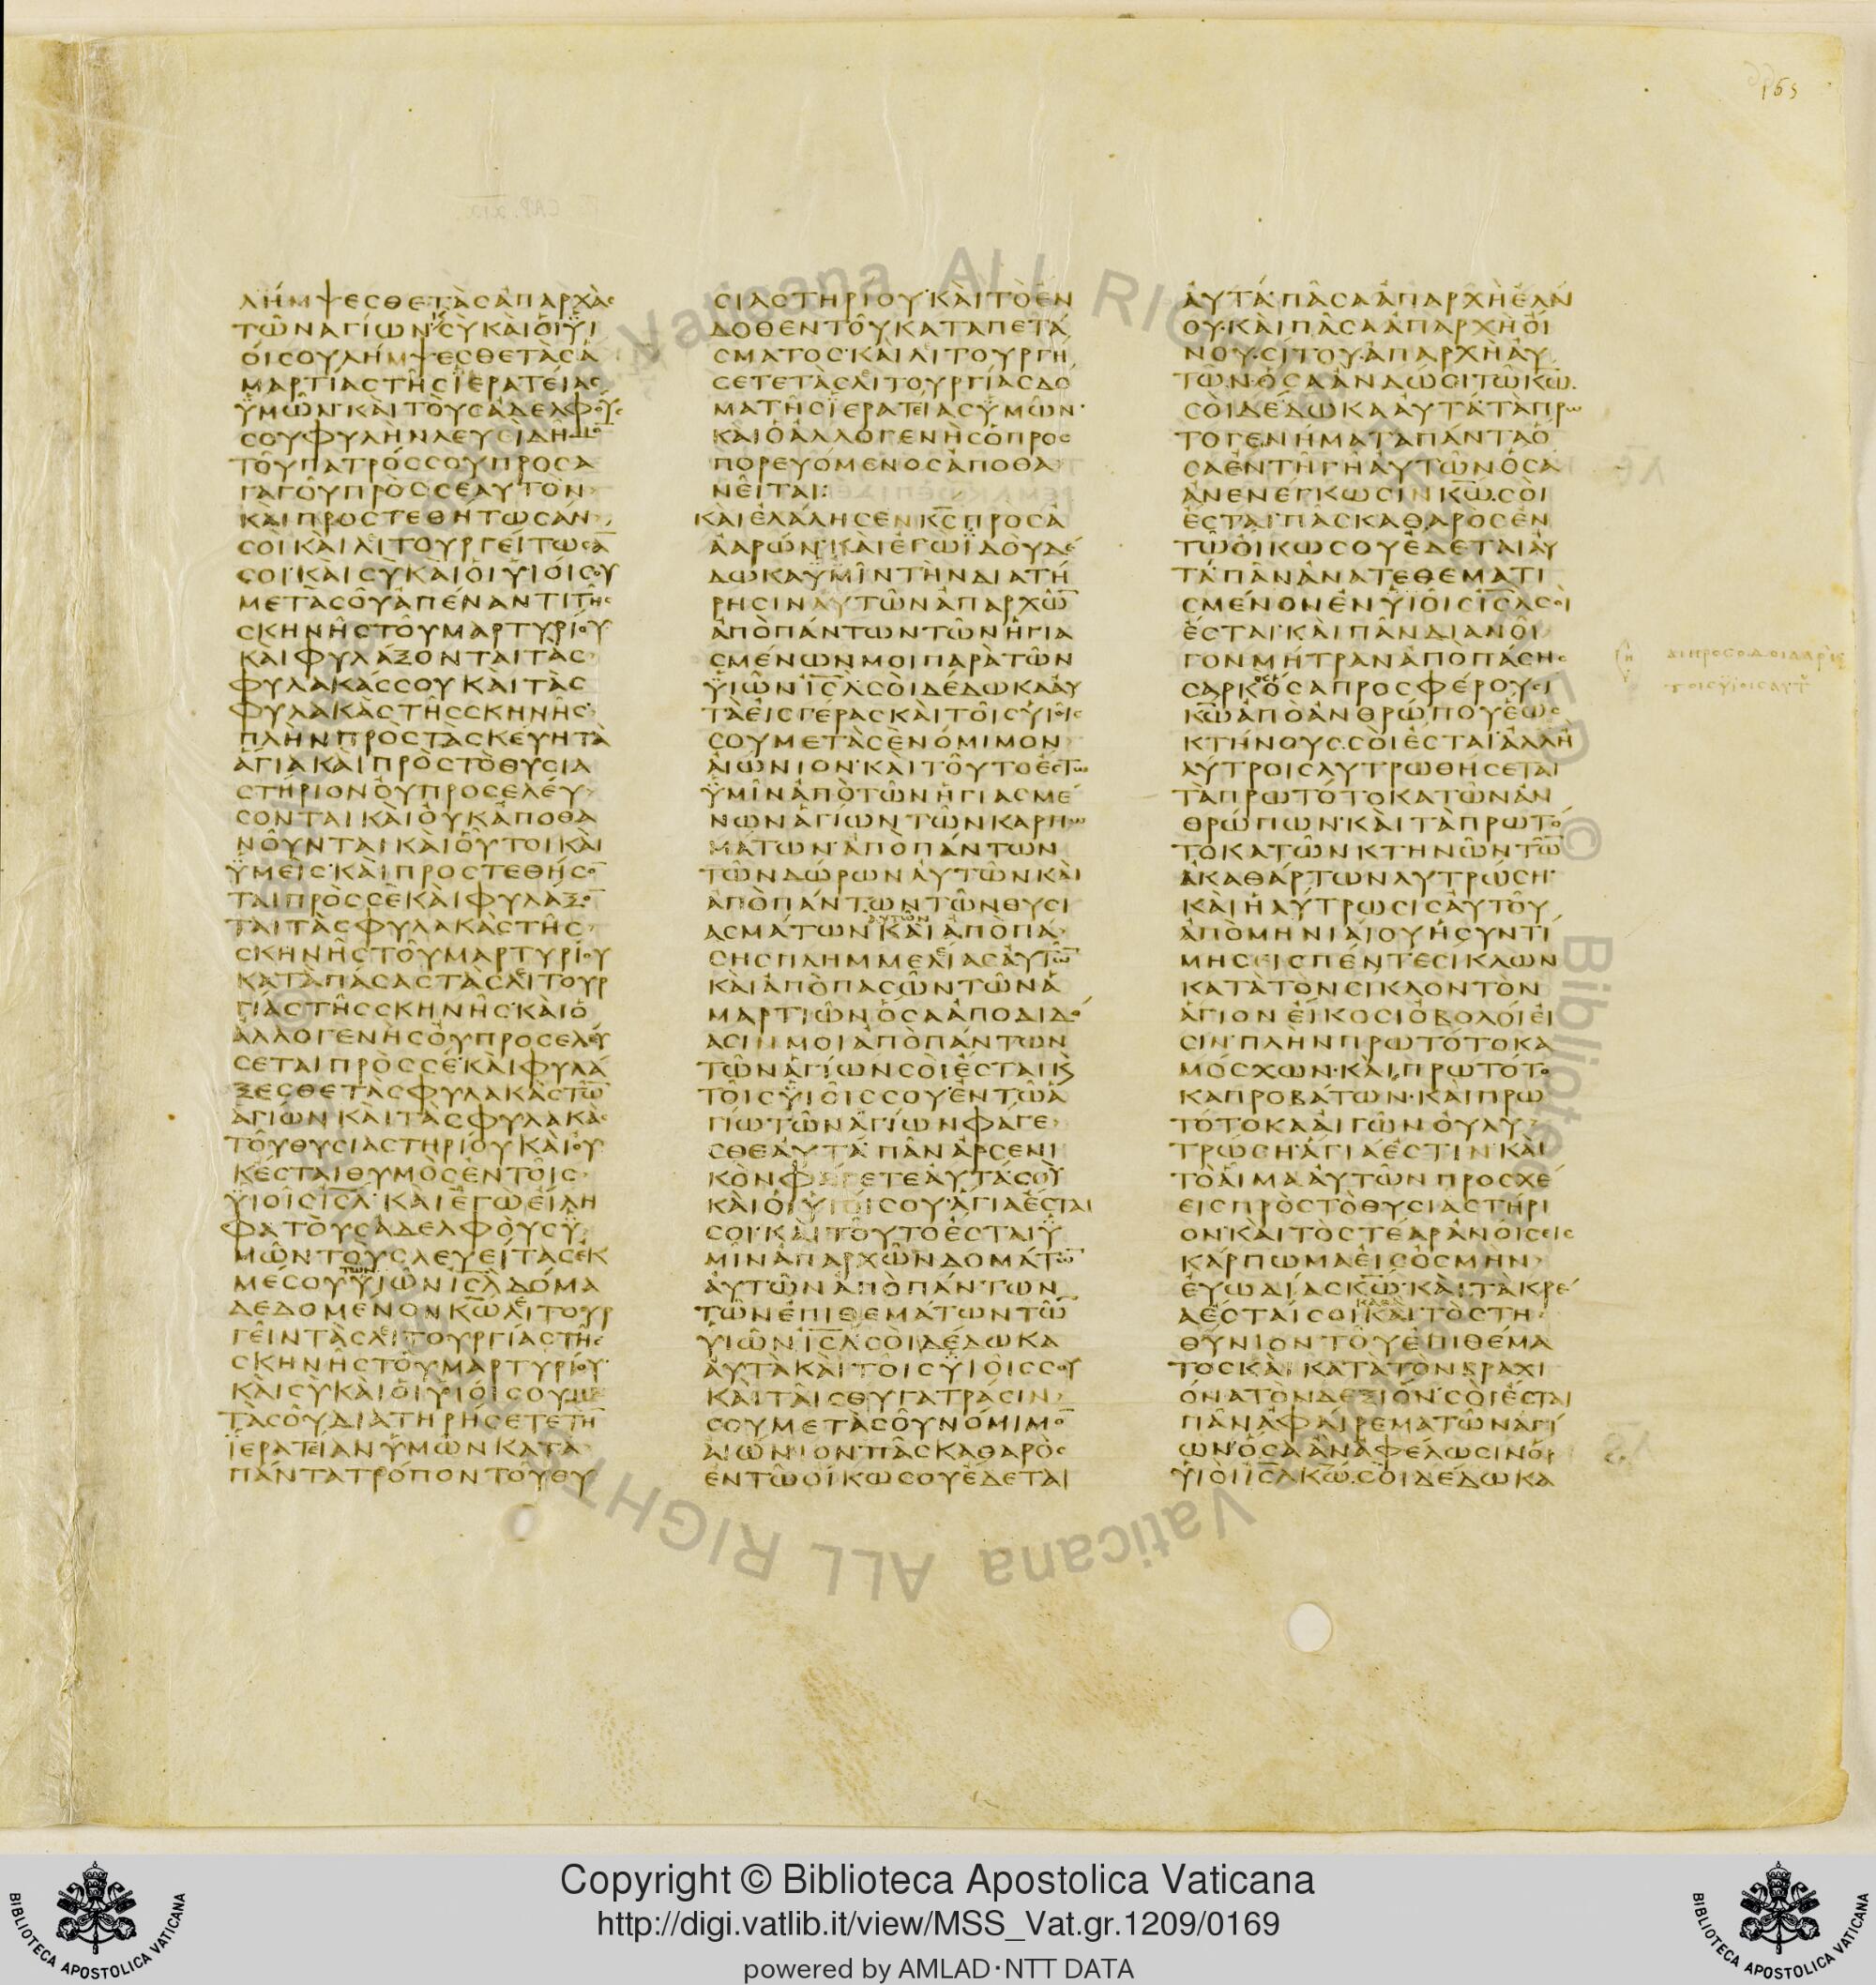 165
ΛΉΜΨΕϹΘΕΤᾺϹἈΠΑΡΧᾺϹ
ΤΩ͂ΝΑΓΊΩΝ·ϹῪΚΑῚΟἹΫἹ
ΟΊϹΟΥΛΉΜΨΕϹΘΕΤᾺϹἉ
ΜΑΡΤΊΑϹΤΗ͂ϹΪΕΡΑΤΕΊΑϹ
ΫΜΩ͂Ν·ΚΑῚΤΟῪϹἈΔΕΛΦΟΎϹ
ϹΟΥΦΥΛῊΝΛΕΥῚΔΗ͂ΜΟ̅
ΤΟΥ͂ΠΑΤΡΌϹϹΟΥΠΡΟϹΑ
ΓΑΓΟΥ͂ΠΡῸϹϹΕΑΥΤΌΝ
ΚΑῚΠΡΟϹΤΕΘΉΤΩϹΆΝ
ϹΟῚΚΑῚΛΕΙΤΟΥΡΓΕΊΤΩϹΑ̅
ϹΟΙ·ΚΑῚϹῪΚΑῚΟἹΫἹΟΊϹΟΥ
ΜΕΤᾺϹΟΥ͂ἈΠΈΝΑΝΤΙΤΗ͂Ϲ
ϹΚΗΝΗ͂ϹΤΟΥ͂ΜΑΡΤΥΡΊΟΥ·
ΚΑῚΦΥΛΆΞΟΝΤΑΙΤᾺϹ
ΦΥΛΑΚΆϹϹΟΥΚΑῚΤᾺϹ
ΦΥΛΑΚᾺϹΤΗ͂ϹϹΚΗΝΗ͂Ϲ·
ΠΛῊΝΠΡῸϹΤᾺϹΚΕΎΗΤᾺ
ἍΓΙΑΚΑῚΠΡῸϹΤῸΘΥϹΙΑ
ϹΤΉΡΙΟΝΟΥ̓ΠΡΟϹΕΛΕΎ
ϹΟΝΤΑΙΚΑῚΟΥ̓ΚἈΠΟΘΑ
ΝΟΥ͂ΝΤΑΙΚΑῚΟΥ͂̔ΤΟΙΚΑῚ
ΫΜΕΙ͂Ϲ·ΚΑῚΠΡΟϹΤΕΘΉϹΟ̅
ΤΑΙΠΡῸϹϹῈΚΑῚΦΥΛΆΞΟ̅
ΤΑΙΤᾺϹΦΥΛΑΚᾺϹΤΗ͂Ϲ
ϹΚΗΝΗ͂ϹΤΟΥ͂ΜΑΡΤΥΡΊΟΥ
ΚΑΤᾺΠΆϹΑϹΤᾺϹΛΕΙΤΟΥΡ
ΓΊΑϹΤΗ͂ϹϹΚΗΝΗ͂Ϲ·ΚΑῚὉ
ἈΛΛΟΓΕΝῊϹΟΥ̓ΠΡΟϹΕΛΕΎ
ϹΕΤΑΙΠΡῸϹϹΈ·ΚΑῚΦΥΛΆ
ΞΕϹΘΕΤᾺϹΦΥΛΑΚᾺϹΤΩ̅
ἉΓΊΩΝΚΑῚΤᾺϹΦΥΛΑΚᾺϹ
ΤΟΥ͂ΘΥϹΙΑϹΤΗΡΊΟΥΚΑῚΟΥ̓
ΚΈϹΤΑΙΘΥΜῸϹἘΝΤΟΙ͂Ϲ
ΫΙΟΙ͂ϹΙ̅Ϲ̅Λ̅·ΚΑῚἘΓΩΕἸΛΗ
ΦΑΤΟῪϹἈΔΕΛΦΟῪϹΫ
ΜΩ͂ΝΤΟῪϹΛΕΥΕΊΤΑϹἘΚ
ΜΈϹΟΥΤΩΝΫΙΩ͂ΝΙ̅Ϲ̅Λ̅ΔΌΜΑ
ΔΕΔΟΜΈΝΟΝΚ̅Ω̅ΛΕΙΤΟΥΡ
ΓΕΙ͂ΝΤᾺϹΛΕΙΤΟΥΡΓΊΑϹΤΗ͂Ϲ
ϹΚΗΝΗ͂ϹΤΟΥ͂ΜΑΡΤΥΡΊΟΥ·
ΚΑῚϹῪΚΑῚΟἹΫἹΟΊϹΟΥΜΕ
ΤΑϹΟΥ͂ΔΙΑΤΗΡΉϹΕΤΕΤΗ̅
ΪΕΡΑΤΕΊΑΝΫΜΩ͂ΝΚΑΤΑ
ΠΆΝΤΑΤΡΌΠΟΝΤΟΥ͂ΘΥ
ϹΙΑϹΤΗΡΊΟΥ·ΚΑῚΤῸἜΝ
ΔΟΘΕΝΤΟΥ͂ΚΑΤΑΠΕΤΆ
ϹΜΑΤΟϹ·ΚΑῚΛΕΙΤΟΥΡΓΉ
ϹΕΤΕΤᾺϹΛΕΙΤΟΥΡΓΊΑϹΔΌ
ΜΑΤΗ͂ϹΪΕΡΑΤΕΊΑϹΫΜΩ͂Ν·
ΚΑῚὉἈΛΛΟΓΕΝῊϹὉΠΡΟϹ
ΠΟΡΕΥΌΜΕΝΟϹἈΠΟΘΑ
ΝΕΙ͂ΤΑΙ:
ΚΑῚἘΛΆΛΗϹΕΝΚ̅Ϲ̅ΠΡΟϹΑ
ΑΡΏΝ·ΚΑῚἘΓΩῚΔΟῪΔΈ
ΔΩΚΑΫΜΙ͂ΝΤῊΝΔΙΑΤΉ
ΡΗϹΙΝΑΥΤΩ͂ΝἈΠΑΡΧΩ̅
ἈΠῸΠΆΝΤΩΝΤΩ͂ΝἩΓΙΑ
ϹΜΈΝΩΝΜΟΙΠΑΡᾺΤΩ͂Ν
ΫΙΩ͂ΝΙ̅Ϲ̅Λ̅·ϹΟῚΔΈΔΩΚΑΑΥ
ΤᾺΕἸϹΓΈΡΑϹΚΑῚΤΟΙ͂ϹΫΙΟΙ͂Ϲ
ϹΟΥΜΕΤᾺϹῈΝΌΜΙΜΟΝ
ΑἸΏΝΙΟΝ·ΚΑῚΤΟΥ͂ΤΟἜϹΤΩ
ΫΜΙ͂ΝἈΠῸΤΩ͂ΝἩΓΙΑϹΜΈ
ΝΩΝἉΓΊΩΝΤΩ͂ΝΚΑΡΠΩ
ΜΆΤΩΝ·ἈΠῸΠΆΝΤΩΝ
ΤΩ͂ΝΔΏΡΩΝΑΥ̓ΤΩ͂ΝΚΑῚ
ἈΠῸΠΆΝΤΩΝΤΩ͂ΝΘΥϹΙ
ΑϹΜΆΤΩΝΑΥΤΩΝΚΑῚἈΠῸΠΆ
ϹΗϹΠΛΗΜΜΕΛΕΊΑϹΑΥ̓ΤΩ̅
ΚΑῚἈΠῸΠΑϹΩ͂ΝΤΩ͂ΝἉ
ΜΑΡΤΙΩ͂ΝὍϹΑἈΠΟΔΙΔΌ
ΑϹΙΜΟΙἈΠῸΠΆΝΤΩΝ
ΤΩ͂ΝἉΓΊΩΝϹΟῚἜϹΤΑΙΚ
ΤΟΙ͂ϹΫΙΟΙ͂ϹϹΟΥ·ἘΝΤΩ͂Ἁ
ΓΊΩΤΩ͂ΝἉΓΊΩΝΦΆΓΕ
ϹΘΕΑΥ̓ΤΆ·ΠΑ͂ΝἈΡϹΕΝΙ
ΚῸΝΦΆΓΕΤΕΑΥ̓ΤΆϹῪ
ΚΑῚΟἹΫἹΟΊϹΟΥ·ἍΓΙΑἜϹΤΑΙ
ϹΟΙ·ΚΑῚΤΟΥ͂ΤΟἜϹΤΑΙΫ
ΜΙ͂ΝἈΠΑΡΧΩ͂ΝΔΟΜΆΤΩ̅
ΑΥ̓ΤΩ͂ΝἈΠῸΠΆΝΤΩΝ
ΤΩ͂ΝἘΠΙΘΕΜΆΤΩΝΤΩ̅
ΫΙΩ͂ΝΙ̅Ϲ̅Λ̅ϹΟῚΔΈΔΩΚΑ
ΑΥ̓ΤᾺΚΑῚΤΟΙ͂ϹΫΙΟΙ͂ϹϹΟΥ
ΚΑῚΤΑΙ͂ϹΘΥΓΑΤΡΆϹΙΝ
ϹΟΥΜΕΤᾺϹΟΥ͂ΝΌΜΙΜΟ̅
ΑἸΏΝΙΟΝΠΑ͂ϹΚΑΘΑΡῸϹ
ἘΝΤΩ͂ΟἼΚΩϹΟΥἜΔΕΤΑΙ
ΑΥ̓ΤΆ·ΠΑ͂ϹΑἈΠΑΡΧῊἘΛΑΊ
ΟΥ·ΚΑῚΠΑ͂ϹΑἈΠΑΡΧῊΟἼ
ΝΟΥ·ϹΊΤΟΥ·ἈΠΑΡΧῊΑΥ̓
ΤΩ͂Ν·ὍϹΑἊΝΔΩ͂ϹΙΤΩ͂Κ̅Ω̅.
ϹΟῚΔΈΔΩΚΑΑΥ̓ΤΆ·ΤᾺΠΡΩ
ΤΟΓΕΝΉΜΑΤΑΠΆΝΤΑὍ
ϹΑἘΝΤΗ͂ΓΗ͂ΑΥ̓ΤΩ͂ΝὍϹΑ
ἊΝΕΝΈΓΚΩϹΙΝΚ̅Ω̅.ϹΟῚ
ἜϹΤΑΙ·ΠΑ͂ϹΚΑΘΑΡῸϹἘΝ
ΤΩ͂ΟἼΚΩϹΟΥἜΔΕΤΑΙΑΥ̓
ΤΆ·ΠΑ͂ΝἈΝΑΤΕΘΕΜΑΤΙ
ϹΜΈΝΟΝἘΝΫΙΟΙ͂ϹΙ̅Ϲ̅Λ̅ϹΟῚ
ἜϹΤΑΙ·ΚΑῚΠΑ͂ΝΔΙΑΝΟΙ͂
ΓΟΝΜΉΤΡΑΝἈΠῸΠΆϹΗϹ
ϹΑΡΚῸϹὍϹΑΠΡΟϹΦΈΡΟΥϹΙ
Κ̅Ω̅ἈΠῸἈΝΘΡΏΠΟΥἝΩϹ
ΚΤΉΝΟΥϹ.ϹΟῚἜϹΤΑΙ·ἈΛΛῊ
ΛΎΤΡΟΙϹΛΥΤΡΩΘΉϹΕΤΑΙ
ΤᾺΠΡΩΤΌΤΟΚΑΤΩ͂ΝἈΝ
ΘΡΏΠΩΝ·ΚΑῚΤᾺΠΡΩΤΌ
ΤΟΚΑΤΩ͂ΝΚΤΗΝΩ͂ΝΤΩ̅
ἈΚΑΘΆΡΤΩΝΛΥΤΡΏϹΗ·
ΚΑῚἩΛΎΤΡΩϹΙϹΑΥ̓ΤΟΥ͂
ἈΠῸΜΗΝΙΑΊΟΥἩϹΥΝΤΊ
ΜΗϹΕΙϹΠΈΝΤΕϹΙΚΛΩΝ
ΚΑΤᾺΤῸΝϹΊΚΛΟΝΤῸΝ
ἍΓΙΟΝΕἼΚΟϹΙὈΒΟΛΟΊΕἸ
ϹΙΝ·ΠΛῊΝΠΡΩΤΌΤΟΚΑ
ΜΌϹΧΩΝ·ΚΑῚΠΡΩΤΌΤΟ
ΚΑΠΡΟΒΆΤΩΝ·ΚΑῚΠΡΩ
ΤΌΤΟΚΑΑἸΓΩ͂Ν.ΟΥ̓ΛΥ
ΤΡΏϹΗ·ἍΓΙΆἘϹΤΙΝ·ΚΑῚ
ΤῸΑἿΜΑΑΥ̓ΤΩ͂ΝΠΡΟϹΧΈ
ΕΙϹΠΡῸϹΤῸΘΥϹΙΑϹΤΉΡΙ
ΟΝ·ΚΑῚΤῸϹΤΈΑΡἈΝΟΊϹΕΙϹ
ΚΆΡΠΩΜΑΕἸϹὈϹΜῊΝ
ΕΥ̓ΩΔΊΑϹΚ̅Ω̅·ΚΑῚΤᾺΚΡΈ
ΑἜϹΤΑΊϹΟΙΚΑΘΑΚΑῚΤῸϹΤΗ
ΘΎΝΙΟΝΤΟΥ͂ἘΠΙΘΈΜΑ
ΤΟϹΚΑῚΚΑΤᾺΤῸΝΒΡΑΧΊ
ΟΝΑΤῸΝΔΕΞΙῸΝ·ϹΟῚἜϹΤΑΙ
ΠΑ͂ΝἈΦΑΊΡΕΜΑΤΩ͂ΝἉΓΊ
ΩΝ·ὍϹΑἊΝἈΦΈΛΩϹΙΝΟἹ
ΫἹΟῚΙ̅Ϲ̅Λ̅Κ̅Ω̅.ϹΟῚΔΈΔΩΚΑ
Copyright © Biblioteca Apostolica Vaticana
http://digi.vatlib.it/view/MSS_Vat.gr.1209/0169
powered by AMLAD·NTT DATA
BIBLIOTECA APOSTOLICA VATICANA
BIBLIOTECA APOSTOLICA VATICANA